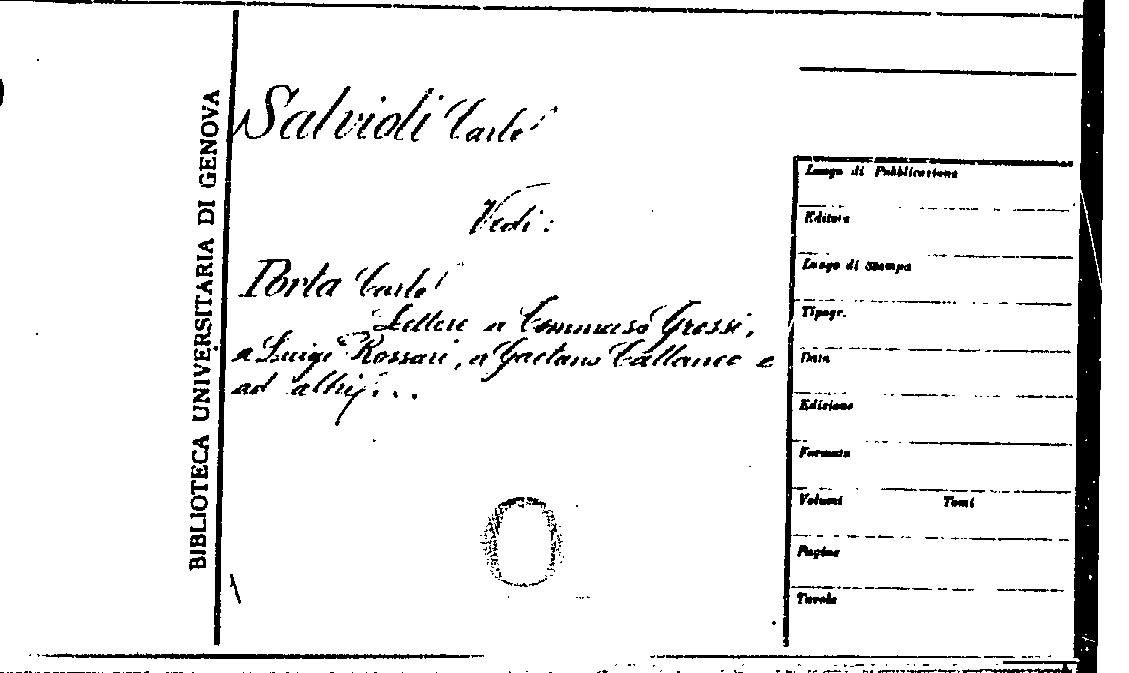 BIBLIOTECA UNIVERSITARIA DI GENOVA
Salvioli Carlo
Vedi:
Porta Carlo
Lettere a Tommaso Grossi,
a Luigi Rossari, a Gaetano Cattaneo e
ad altri...
Luogo di Pubblicazione
Editore
Luogo di Stampa
Tipogr.
Data
Edizione
Formato
Volumi Tomi
Pagine
Tavole